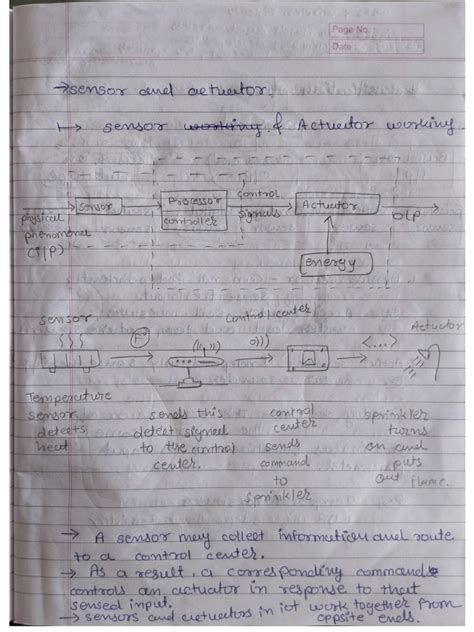 Page No.
Date
→ sensor and actuator.
↦ sensor working & Actuator working
Sensor
Processor
controller
control
signals
Actuator
physical
phenomena
(I/P)
O/P
energy
sensor
control center
Actuator
F°
((•))
o)))
<...>
Temperature
sensor
detects
heat
sends this
detect signal
to the control
center.
control
center
sends
command
to
sprinkler
sprinkler
turns
on and
puts
out flame.
→ A sensor may collect information and route
to a control center.
→ As a result, a corresponding command
controls an actuator in response to that
sensed input.
→ sensors and actuators in iot work together from
opposite ends.